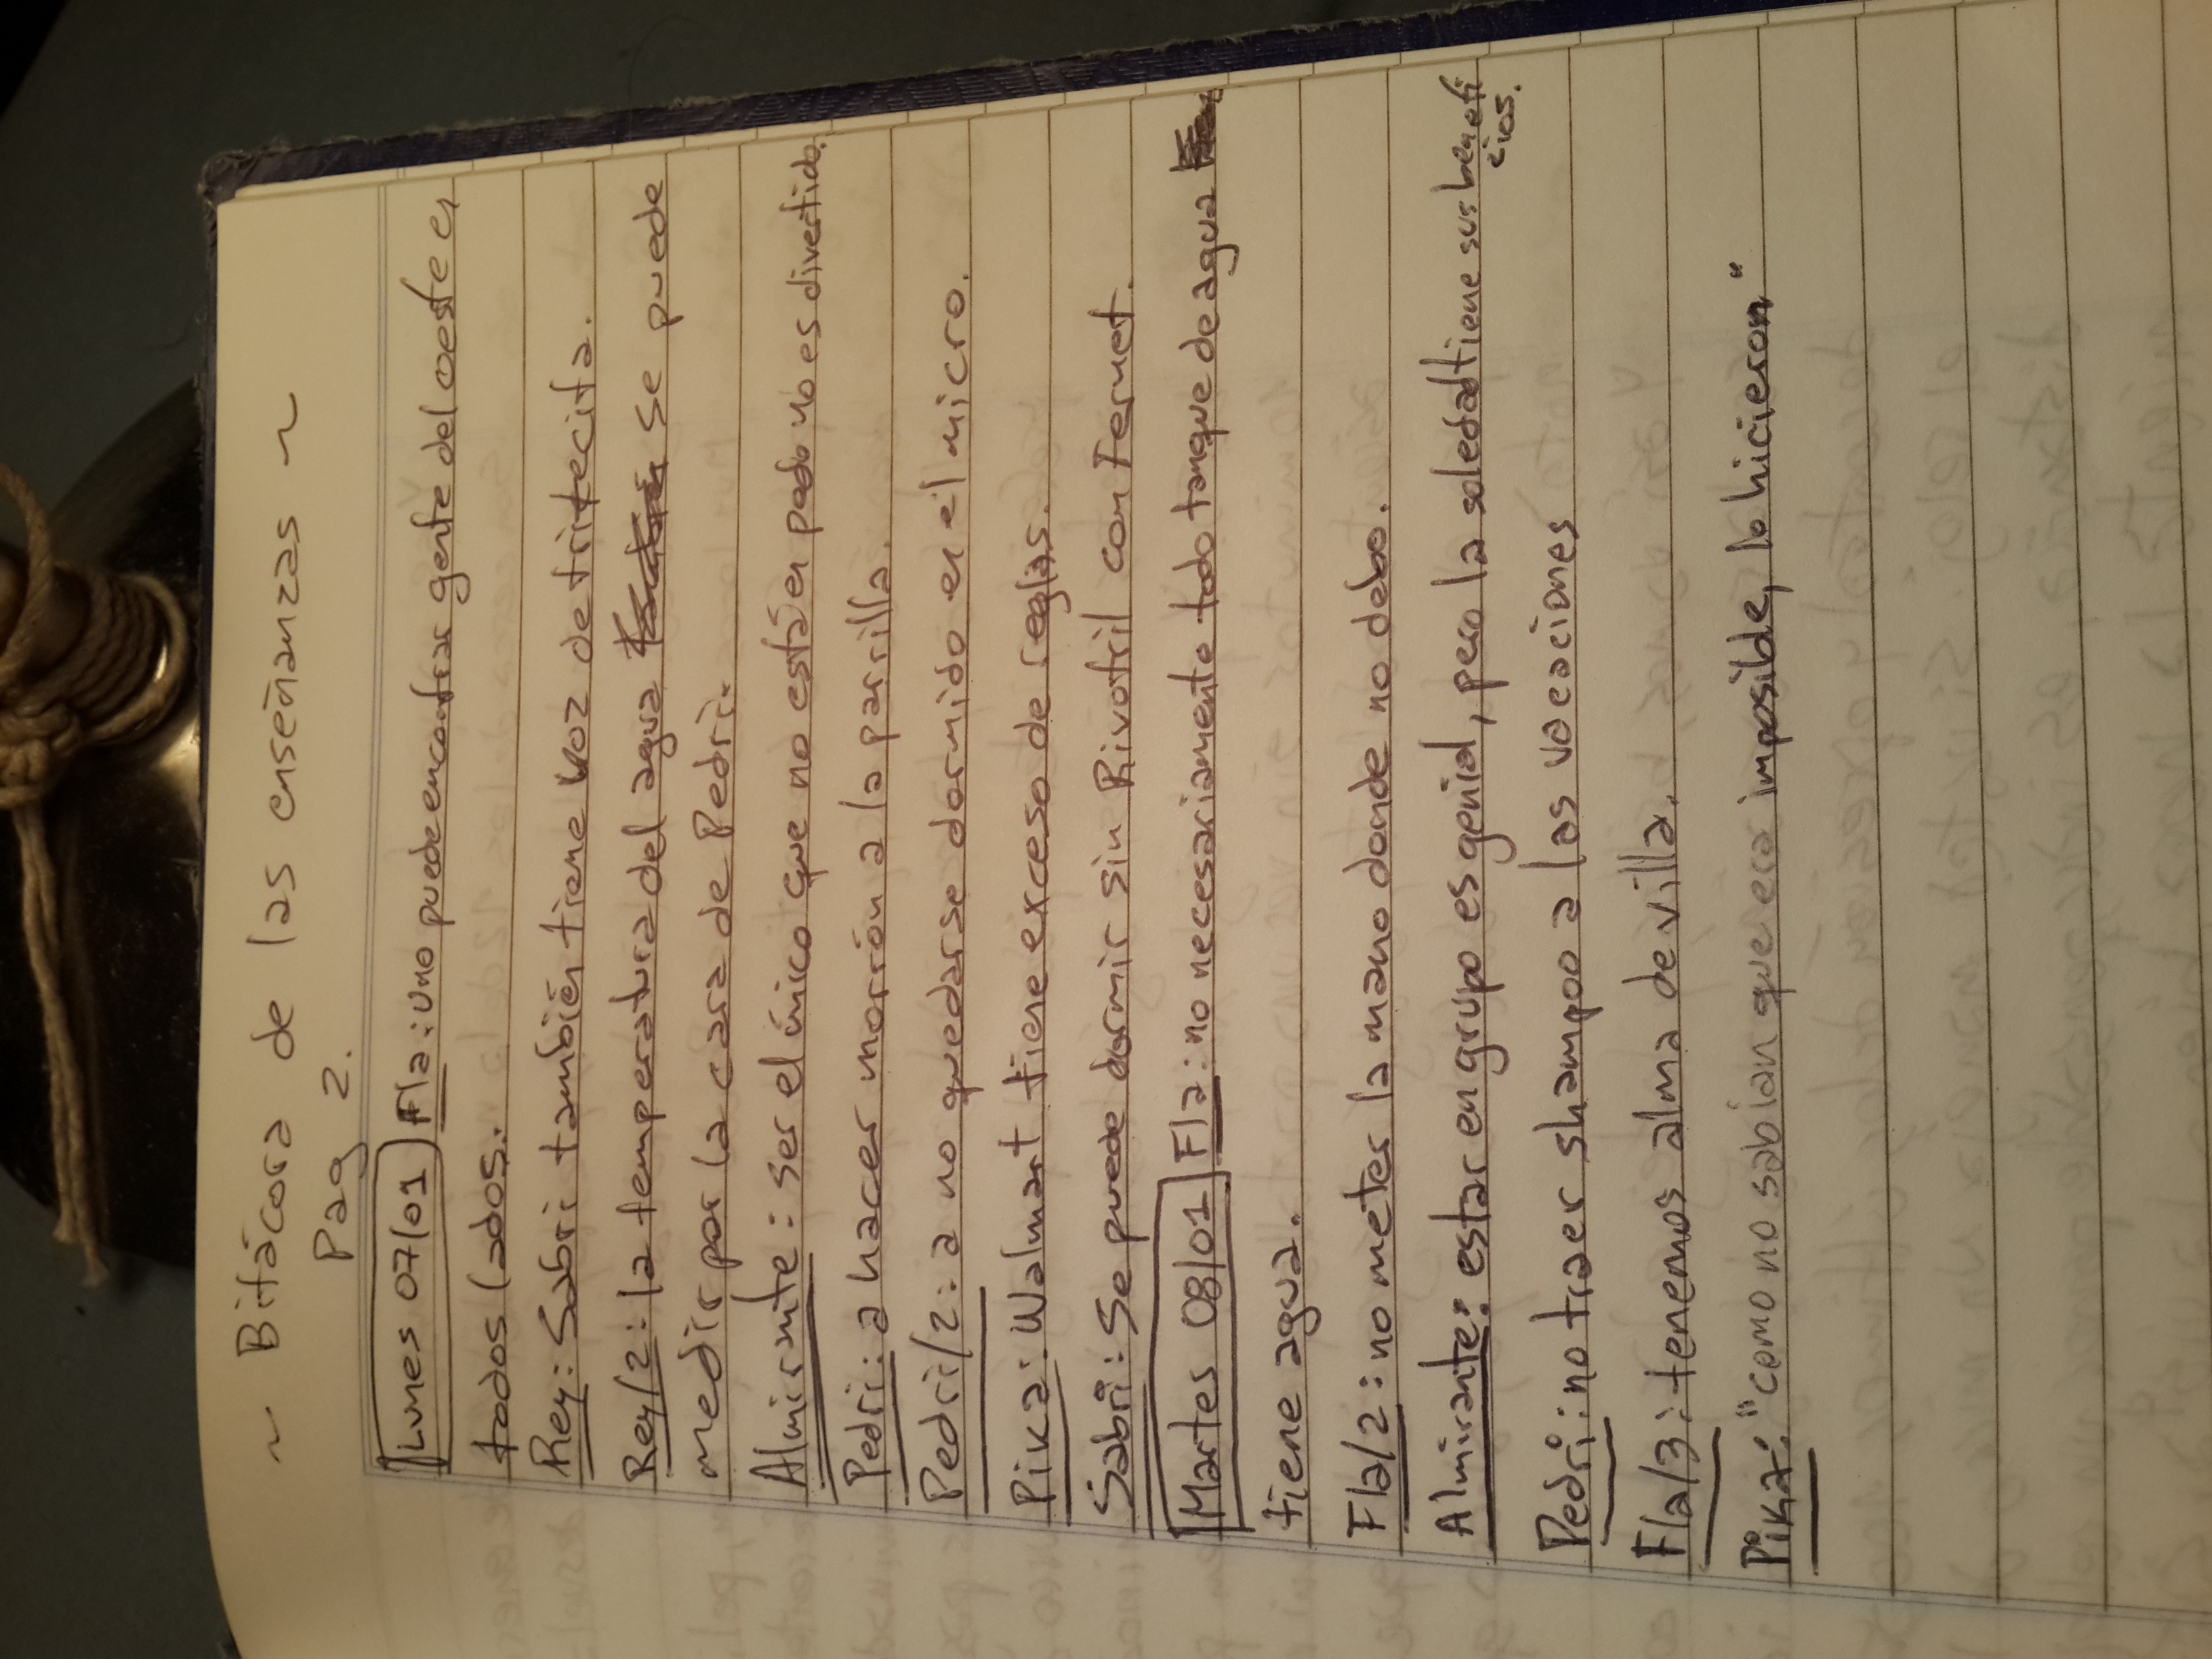 ~ Bitácora de las enseñanzas ~
Pag 2.
Lunes 07/01 Fla: uno puede encontrar gente del oeste en
todos lados.
Rey: Sabri también tiene voz de tritecita.
Rey/2: la temperatura del agua se puede
medir por la cara de Pedri.
Almirante: ser el único que no está en pedo no es divertido.
Pedri: a hacer morrón a la parrilla.
Pedri/2: a no quedarse dormido en el micro.
Pika: Walmart tiene exceso de reglas.
Sabri: Se puede dormir sin Rivotril con Fernet.
Martes 08/01 Fla: no necesariamente todo tanque de agua
tiene agua.
Fla/2: no meter la mano donde no debo.
Almirante: estar en grupo es genial, pero la soledad tiene sus benefi
cios.
Pedri: no traer shampoo a las vacaciones
Fla/3: tenemos alma de villa.
Pika: "como no sabían que era imposible, lo hicieron"